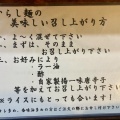 らし麺の
美味しい召し上がり方
一、よく混ぜて下さい
二、まずは、そのまま
お召し上がり下さい
三、お好みにより
・ラー油
・酢
・自家製揚一味唐辛子
等を加えてお召し上がり下さい
ライスにもとっても合います。